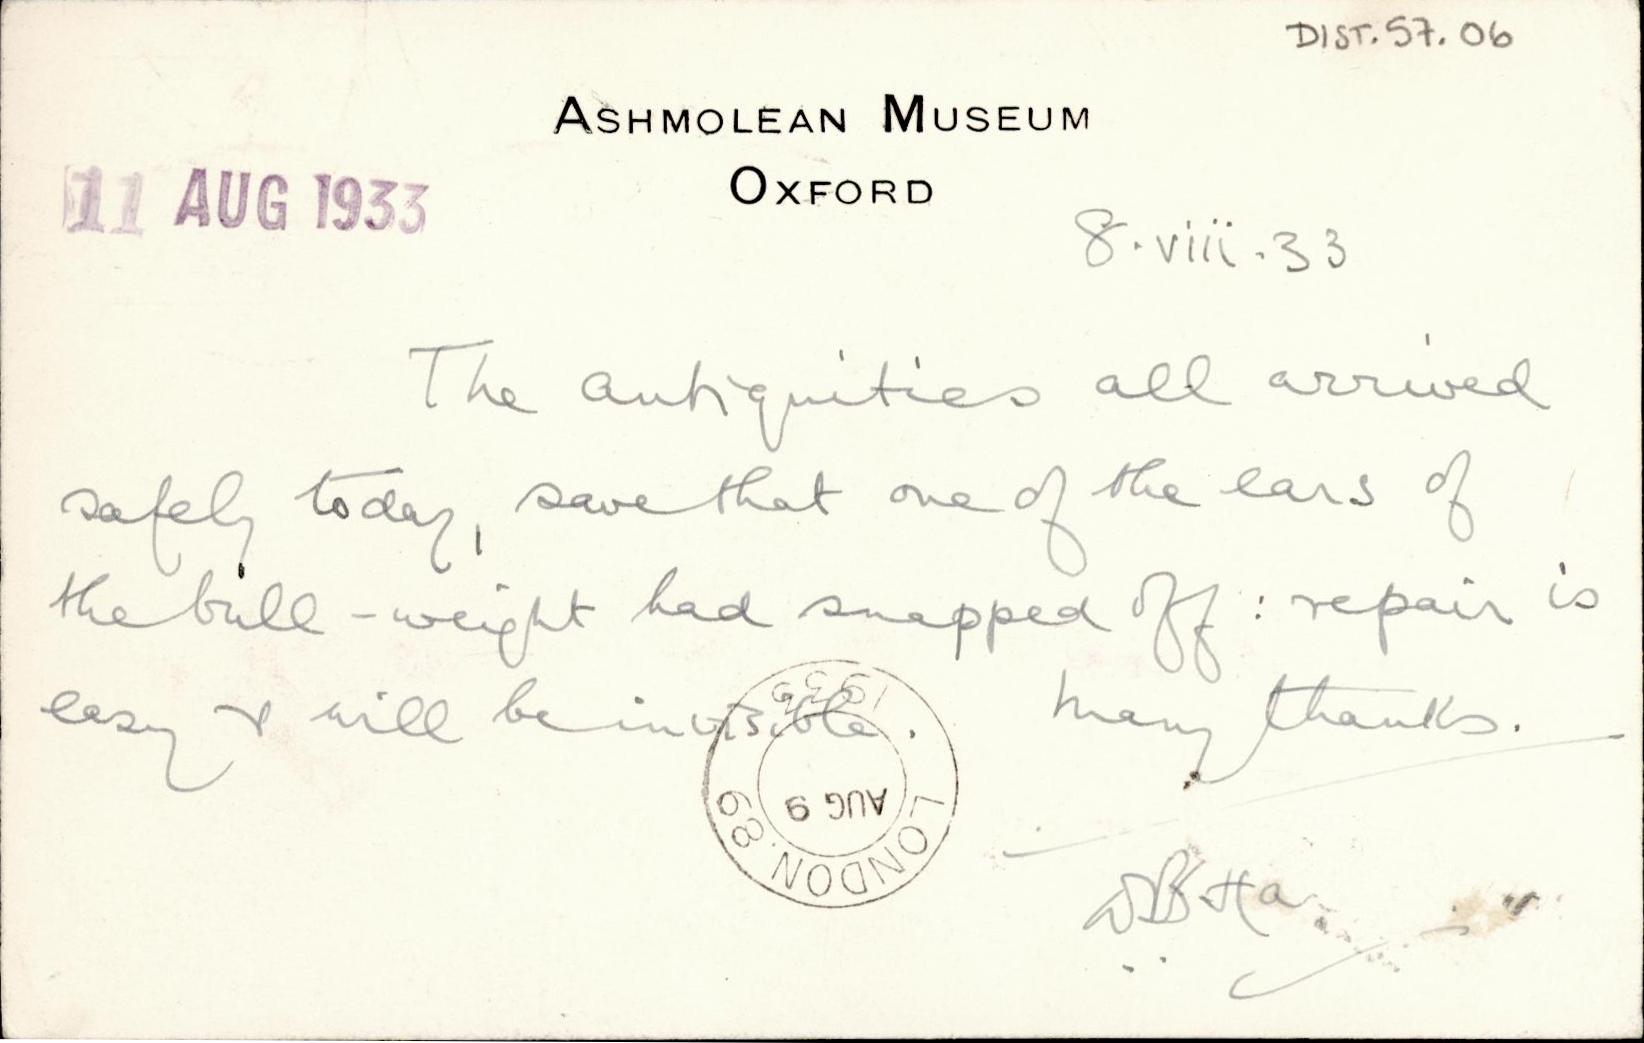 DIST. 57. 06
ASHMOLEAN MUSEUM
OXFORD
11 AUG 1933
8. viii. 33
The antiquities all arrived
safely today, save that one of the ears of
the bull-weight had snapped off: repair is
easy & will be invisible. Many thanks.
LONDON. 89
AUG 9
1933
DB Ha